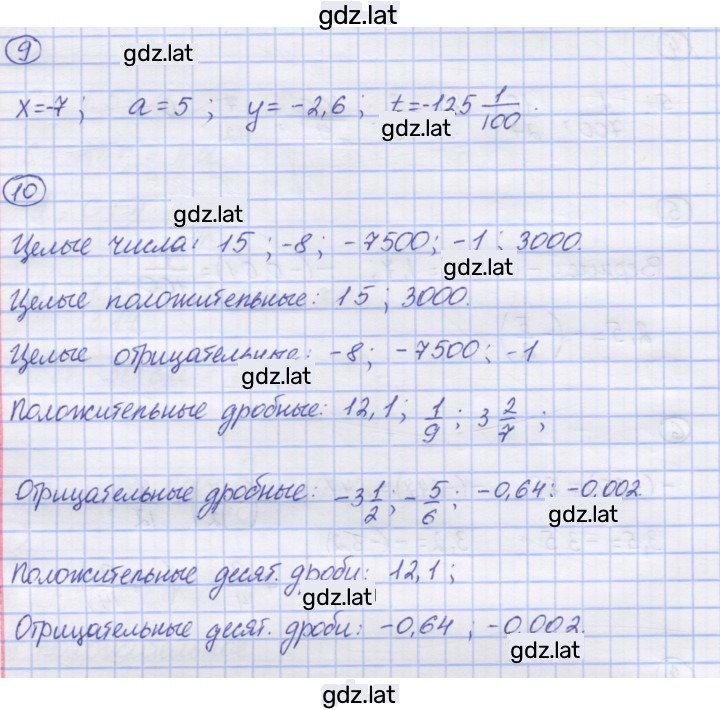 gdz.lat
9
gdz.lat
x=-7; a=5; y=-2,6; t=-125 1/100.
gdz.lat
10
gdz.lat
Целые числа: 15; -8; -7500; -1; 3000.
gdz.lat
Целые положительные: 15; 3000.
Целые отрицательные: -8; -7500; -1
gdz.lat
Положительные дробные: 12,1; 1/9; 3 2/7;
Отрицательные дробные: -3 1/2; -5/6; -0,64: -0.002.
gdz.lat
Положительные десят. дроби: 12,1;
gdz.lat
Отрицательные десят. дроби: -0,64; -0.002.
gdz.lat
gdz.lat